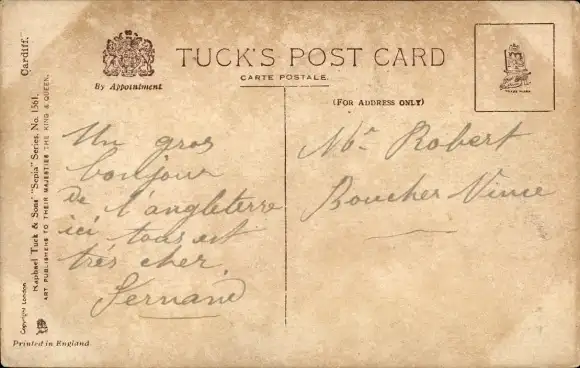 TUCK'S POST CARD
CARTE POSTALE.
By Appointment
(FOR ADDRESS ONLY)
TRADE MARK
Cardiff.
Raphael Tuck & Sons' "Sepia" Series, No. 1561.
ART PUBLISHERS TO THEIR MAJESTIES THE KING & QUEEN.
Copyright London
Printed in England.
Un gros
bonjour
De l'angleterre
ici tous est
très cher.
Fernand
Mr Robert
Boucher Vince